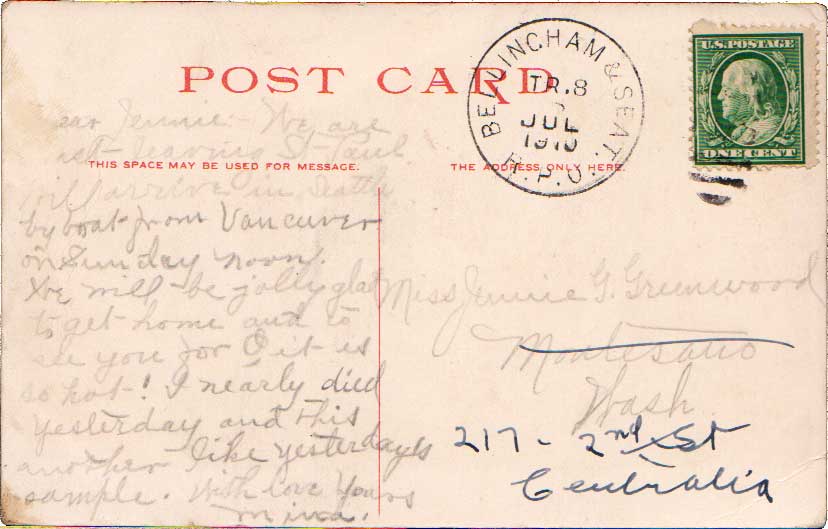 POST CARD
THIS SPACE MAY BE USED FOR MESSAGE.
THE ADDRESS ONLY HERE.
BELLINGHAM & SEAT. R.P.O.
TR. 8
JUL
1910
U.S. POSTAGE
ONE CENT
Dear Jennie:- We are
just leaving St Paul
will arrive in Seattle
by boat from Vancuver
on Sunday noon.
We will be jolly glad
to get home and to
see you for O it is
so hot! I nearly died
yesterday and this
another like yesterdays
sample. With love Yours
Mina.
Miss Jennie G. Greenwood
Montesano
Wash
217 - 2nd St
Centralia